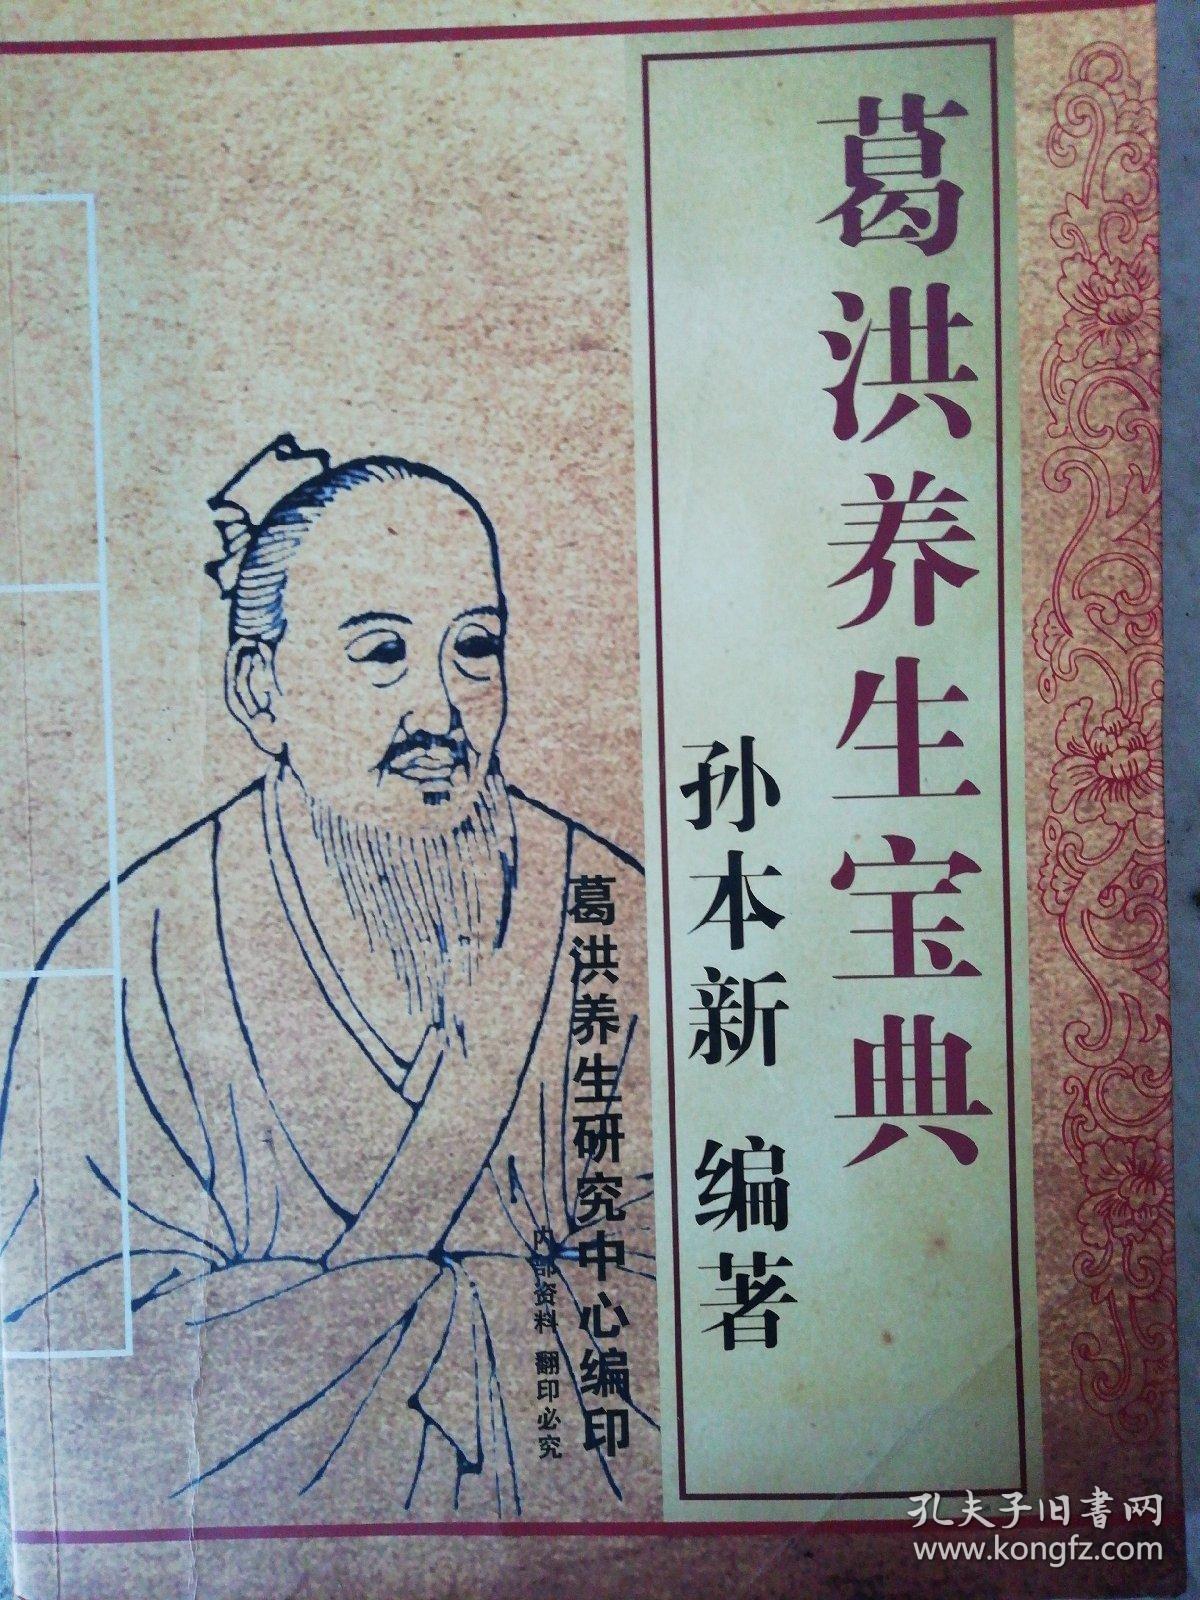 葛洪养生宝典
孙本新 编著
葛洪养生研究中心编印
内部资料 翻印必究
孔夫子旧書网
www.kongfz.com